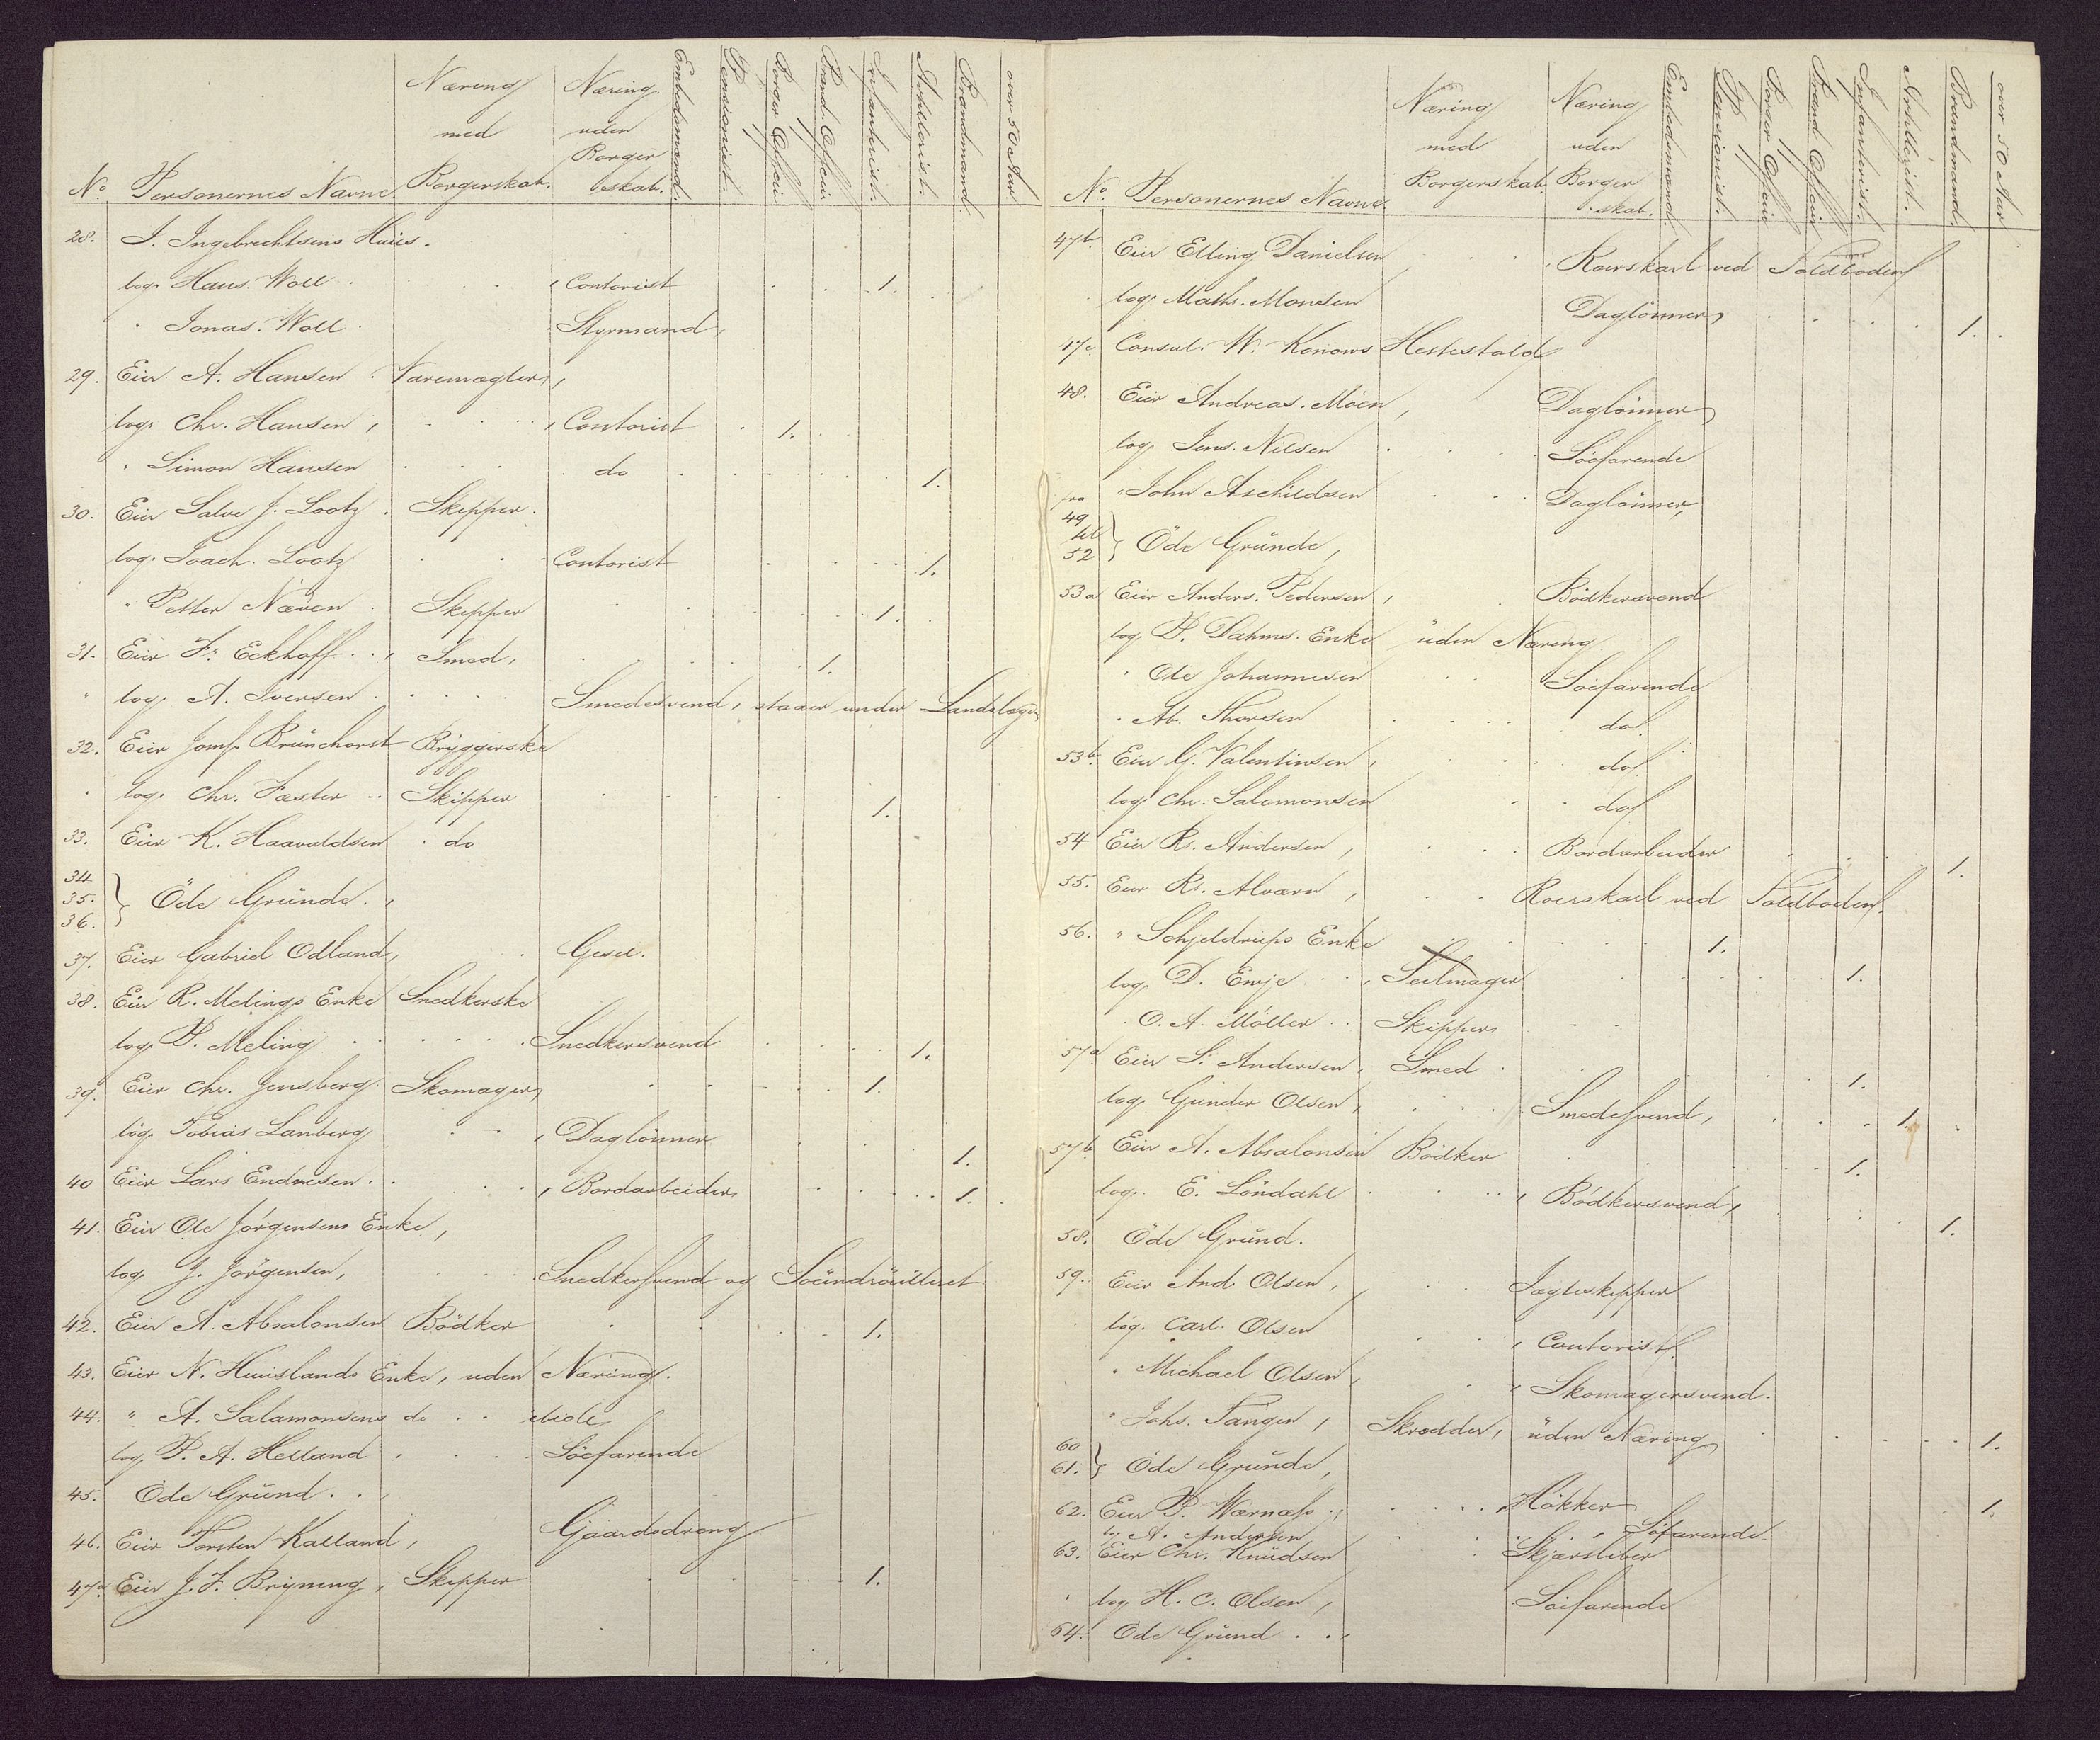 No. Personernes Navne. Næring med Borgerskab. Næring uden Borger skab. Embedsmænd. Pensionist. Borger Officir Brand. Officir Infanterist. Artillerist. Brandmænd. over 50 Aar.
28. J. Ingebrechtsens Huus.
log. Hans. Woll Contorist 1.
" Jonas. Woll Styrmand
29. Eier A. Hansen Varemægler,
log. Chr. Hansen, Contorist 1.
" Simon Hansen do 1.
30. Eier Salve J. Lootz Skipper.
log. Joach. Lootz Contorist 1.
" Petter Næven Skipper 1.
31. Eier Fr. Eckhoff Smed, 1.
" log. A. Iversen Smedesvend, staaer under Landslægd
32. Eier Jomf. Brünchorst Bryggerske
log. Chr. Fæster Skipper 1.
33. Eier K. Haavaldsen do
34
35. } Öde Gründe.
36.
37. Eier Gabriel Odland, Gesel.
38. Eier R. Melings Enke Snedkerske
log. P. Meling Snedkersvend 1.
39. Eier Chr. Jensberg Skomager 1.
log. Tobias Lanberg Daglönner 1.
40 Eier Lars Endresen Bordarbeider 1.
41. Eier Ole Jörgensens Enke,
log. J. Jörgensen, Snedkersvend og Söeindröulleret
42. Eier A. Absalonsen Bödker 1.
43. Eier N. Huuslands Enke, uden Næring.
44. " A. Salamonsens do ibid
log. P. A. Helland Söefarende
45. Öde Gründ.
46. Eier Torsten Kalland, Gaardsdreng
47a Eier J. F. Bryneng, Skipper 1.
No. Personernes Navne. Næring med Borgerskab. Næring uden Borger skab. Embedsmænd. Pensionist. Borger Officir Brand Officir Infanterist. Artillerist. Brandmænd over 50 Aar
47b. Eier Elling Danielsen Roerskarl ved Toldboden
log. Maths. Monsen Daglönner, 1.
47c Consul. W. Konows Hestestald
48. Eier Andreas. Möen, Daglönner
log. Jens. Nilsen Söefarende
" John Aschildsen Daglönner,
fra
49
til } Öde Gründe,
52
53a Eier Anders. Pedersen, Bödkersvend
log. P. Dahms. Enke üden Næring
" Ole Johannesen Söefarende
" Ab. Thorsen do.
53b. Eier G. Valentinsen, do
log. Chr. Salomonsen do
54 Eier Rs. Andersen, Bordarbeider 1.
55. Eier Rs. Alværn, Roerskarl ved Toldboden.
56. " Schjeldrups Enke 1.
log. D. Ewje Seilmager 1.
" O. A. Möller Skipper
57a Eier S. Andersen, Smed 1.
log. Günder Olsen, Smedesvend, 1.
57b Eier A. Absalonsen Bödker 1.
log. E. Löndahl Bödkersvend, 1.
58. Öde Gründ.
59. Eier And. Olsen, Jagteskipper
log. Carl. Olsen Contorist.
" Michael Olsen, Skomagersvend.
" Johs. Tangen, Skrædder, üden Næring 1.
60
61. } Öde Gründe,
62. Eier P. Wærnæss Hökker 1.
log. A. Andersen Söfarende.
63. Eier Chr. Knüdsen Skjærsliber
" log. H. C. Olsen, Söefarende
64. Öde Gründ